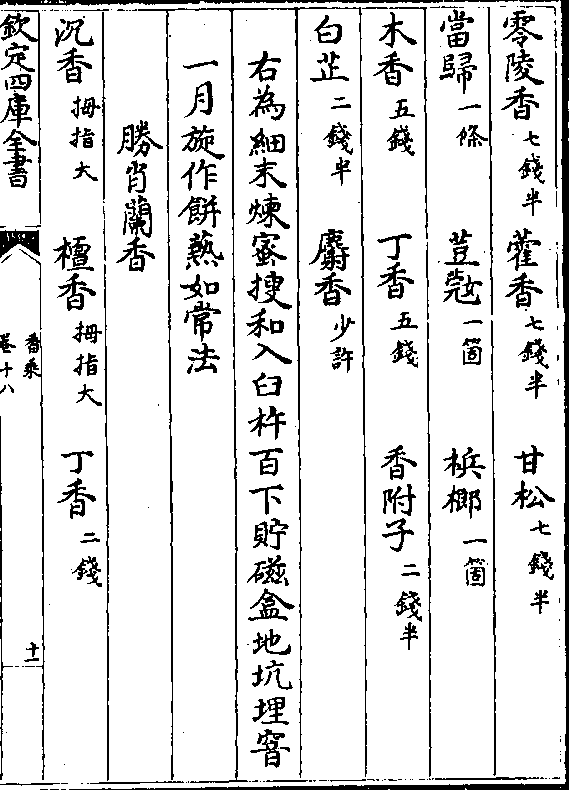 零陵香七錢半 藿香七錢半 甘松七錢半
當歸一條 荳蔲一箇 檳榔一箇
木香五錢 丁香五錢 香附子二錢半
白芷二錢半 麝香少許
右為細末煉蜜搜和入臼杵百下貯磁盒地坑埋窨
一月旋作餅爇如常法
勝肖蘭香
沉香拇指大 檀香拇指大 丁香二錢
欽定四庫全書
香乘
卷十八
十一